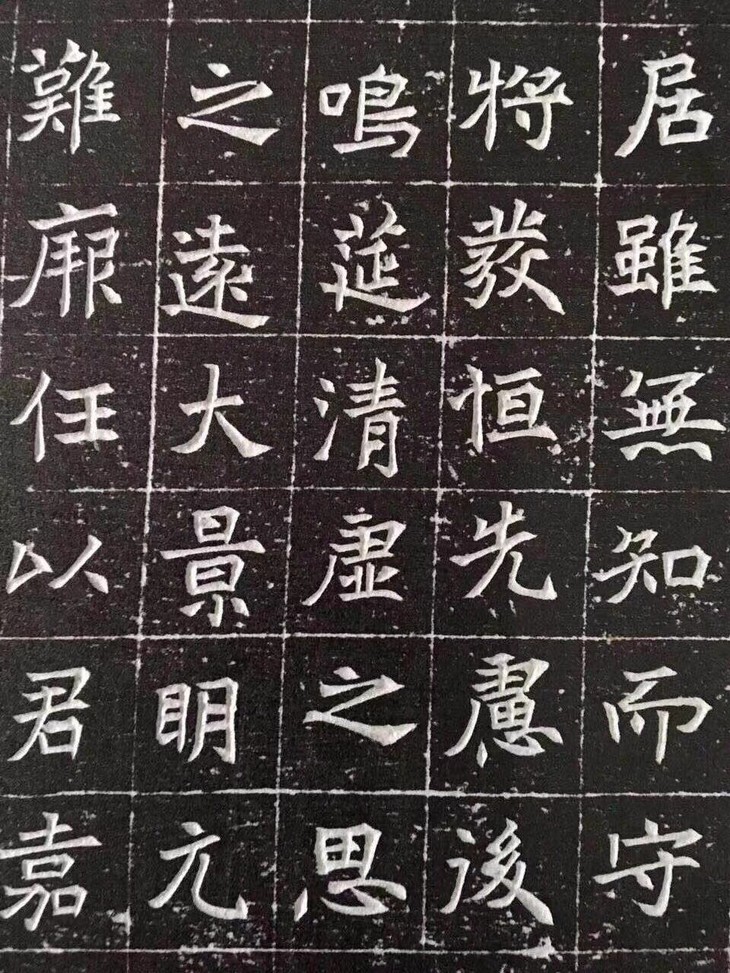 居雖無知而守
將發恒先慮後
鳴莚清虛之思
之遠大景明元
難廊任以君嘉